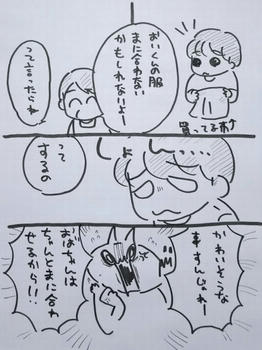 おいくんの服
まに合わない
かもしれないよー
って言ったらね
買ってる布↑
しょ
ん……
って
するの
かわいそうな
事すんじゃねー
おばちゃんは
ちゃんとまに合わ
せるから!!